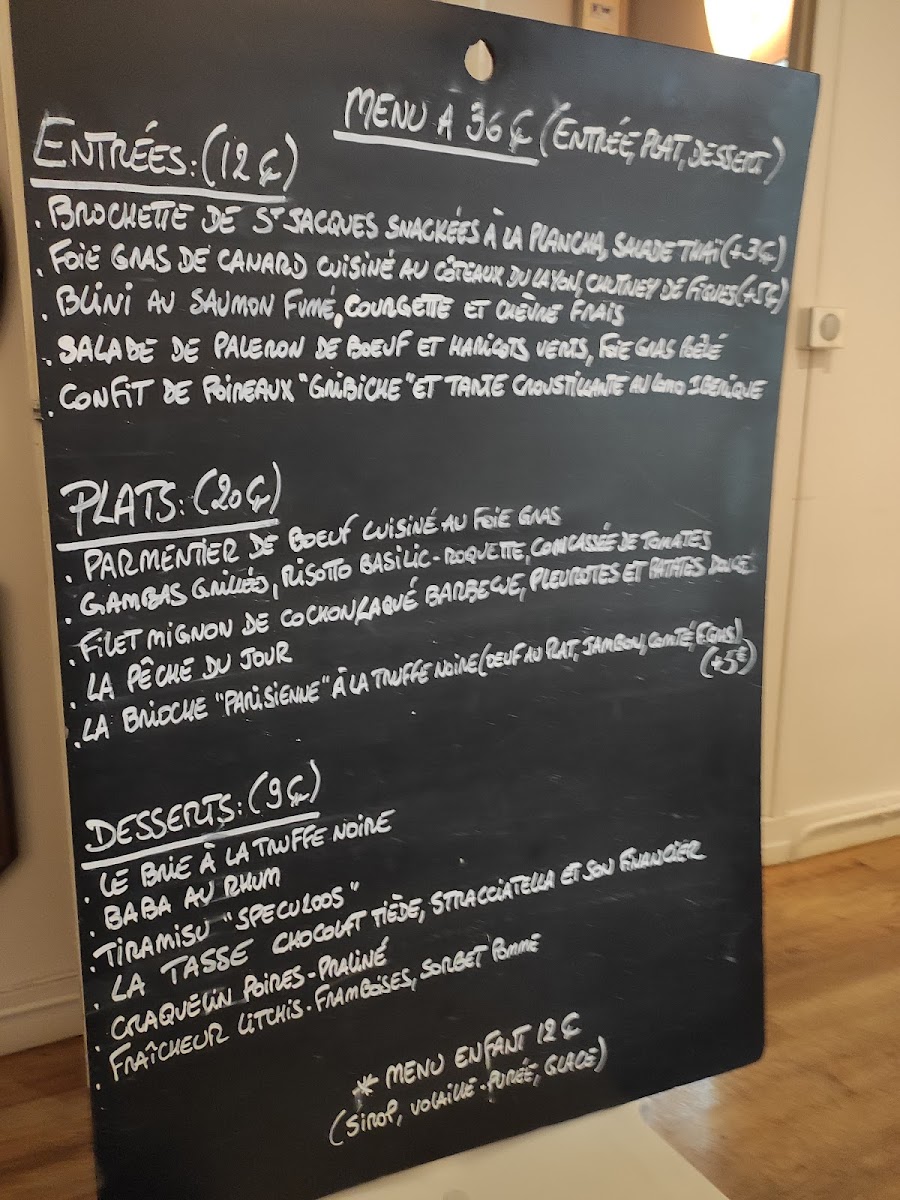 MENU A 36€ (ENTRÉE, PLAT, DESSERT)
ENTRÉES: (12€)
. BROCHETTE DE ST JACQUES SNACKÉES À LA PLANCHA, SALADE THAÏ (+3€)
. FOIE GRAS DE CANARD CUISINÉ AU CÔTEAUX DU LAYON, CHUTNEY DE FIGUES (+5€)
. BLINI AU SAUMON FUMÉ, COURGETTE ET CHÈVRE FRAIS
. SALADE DE PALERON DE BOEUF ET HARICOTS VERTS, FOIE GRAS POÊLÉ
. CONFIT DE POIREAUX "GRIBICHE" ET TARTE CROUSTILLANTE AU LOMO IBERIQUE
PLATS: (20€)
. PARMENTIER DE BOEUF CUISINÉ AU FOIE GRAS
. GAMBAS GRILLÉES, RISOTTO BASILIC-ROQUETTE, CONCASSÉE DE TOMATES
. FILET MIGNON DE COCHON LAQUÉ BARBECUE, PLEUROTES ET PATATES DOUCE
. LA PÊCHE DU JOUR
. LA BRIOCHE "PARISIENNE" À LA TRUFFE NOIRE (OEUF AU PLAT, JAMBON, COMTÉ, F. GRAS)
(+5€)
DESSERTS: (9€)
. LE BRIE À LA TRUFFE NOIRE
. BABA AU RHUM
. TIRAMISU "SPECULOOS"
. LA TASSE CHOCOLAT TIÈDE, STRACCIATELLA ET SON FINANCIER
. CRAQUELIN POIRES-PRALINÉ
. FRAÎCHEUR LITCHIS-FRAMBOISES, SORBET POMME
* MENU ENFANT 12€
(SIROP, VOLAILLE-PURÉE, GLACE)